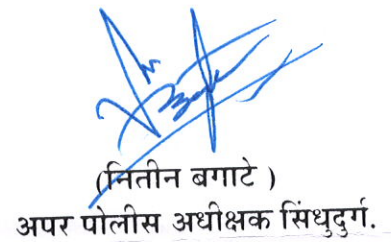 (नितीन बगाटे )
अपर पोलीस अधीक्षक सिंधुदुर्ग.